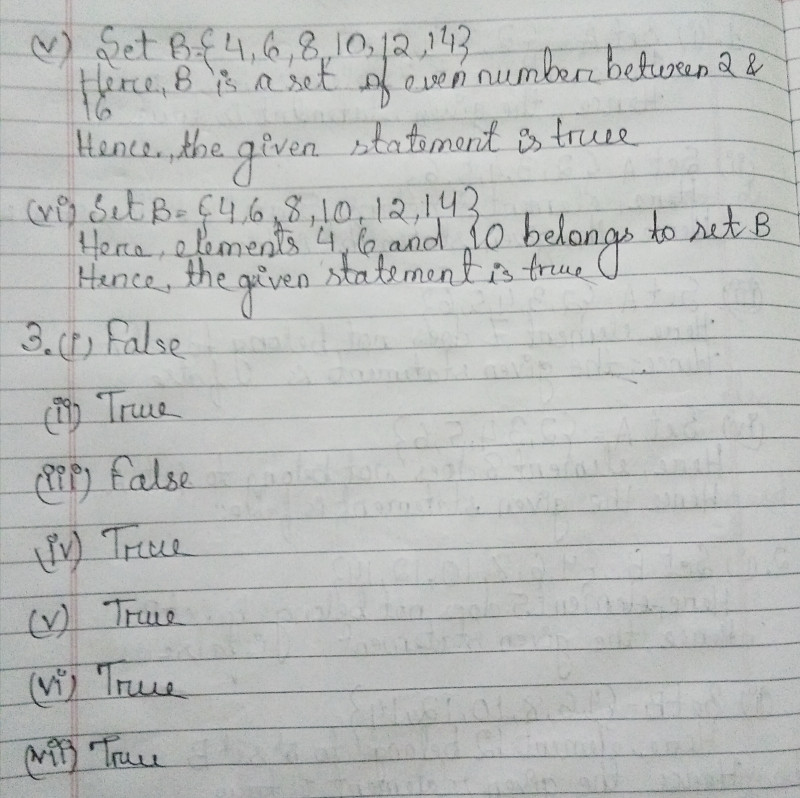 (v) Set B={4,6,8,10,12,14}
Here, B is a set of even number between 2 &
16
Hence, the given statement is true
(vi) Set B= {4,6,8,10,12,14}
Here, elements 4,6 and 10 belongs to set B
Hence, the given statement is true
3.(i) False
(ii) True
(iii) False
(iv) True
(v) True
(vi) True
(vii) True